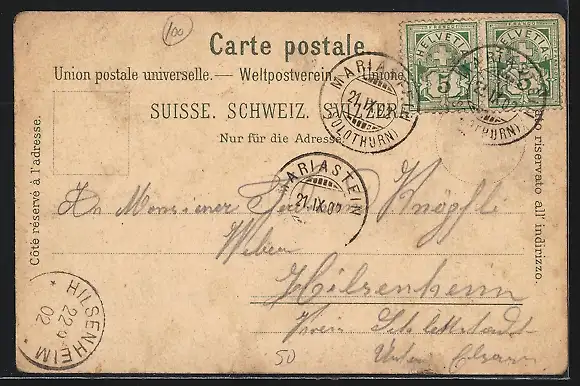 100
Carte postale.
Union postale universelle. — Weltpostverein. — Unione
SUISSE. SCHWEIZ. SVIZZERA
Nur für die Adresse
Côté réservé à l'adresse.
riservato all' indirizzo.
HELVETIA
5
FRANCO
HELVETIA
5
MARIASTEIN
21.IX.02
(SOLOTHURN)
MARIASTEIN
21.IX.02
(SOLOTHURN)
MARIASTEIN
21.IX.02
An Monsieur Knöpfle
Weber
Hilsenheim
Kreis Schlettstadt
Unter Elsass
50
HILSENHEIM
22 9
02